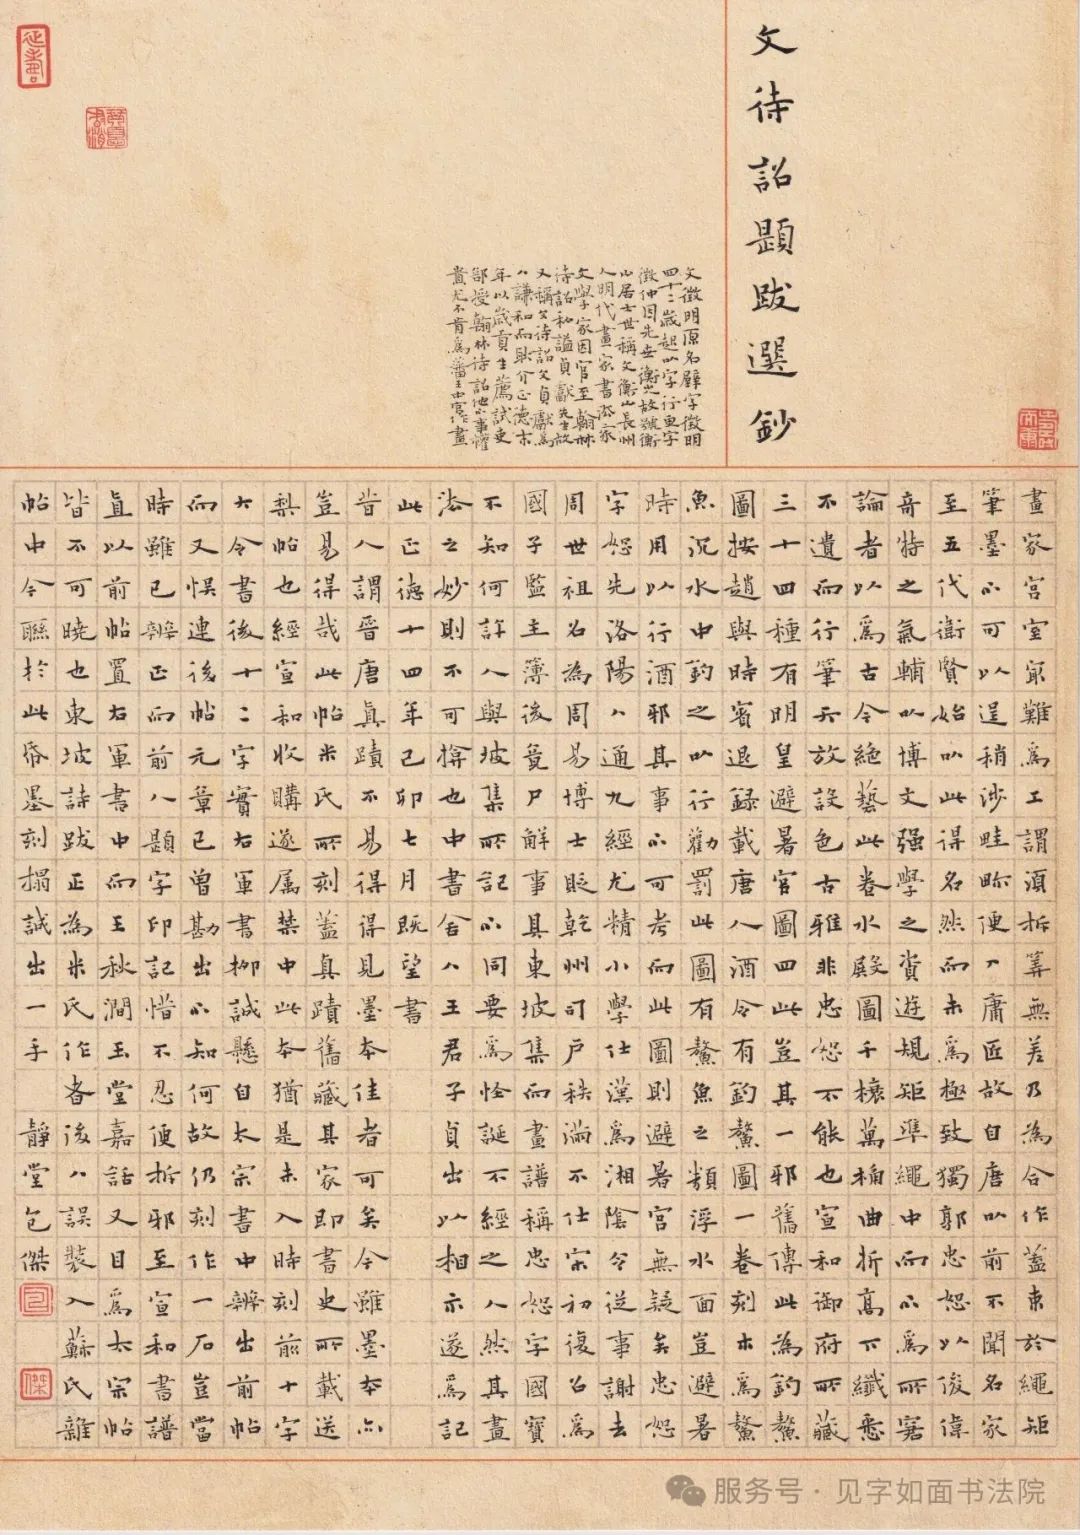 文待詔題跋選鈔
文徵明原名壁字徵明
四十二歲起以字行更字
徵仲因先世衡山故號衡
山居士世稱文衡山長州
人明代畫家書法家
文學家因官至翰林
待詔私謚貞獻先生故
又稱文待詔文貞獻為
人謙和而耿介正德末
年以歲貢生薦試吏
部授翰林待詔他不事權
貴尤不肯為藩王中官作畫
畫家宮室冣難為工謂須折筭無差乃為合作蓋束於繩矩
筆墨不可以逞稍涉畦畛便入庸匠故自唐以前不聞名家
至五代衛賢始以此得名然而未為極致獨郭忠恕以俊偉
奇特之氣輔以博文强學之資遊規矩準繩中而不為所窘
論者以為古今絕藝此卷水殿圖千榱萬桷曲折高下纖悉
不遺而行筆天放設色古雅非忠恕不能也宣和御府所藏
三十四種有明皇避暑宮圖四此豈其一邪舊傳此為釣鰲
圖按趙與時賓退録載唐人酒令有釣鰲圖一卷刻木為鰲
魚沉水中釣之以行勸罰此圖有鰲魚之類浮水面豈避暑
時用以行酒邪其事不可考而此圖則避暑宮無疑矣忠恕
字恕先洛陽人通九經尤精小學仕漢為湘陰令從事謝去
周世祖名為周易博士貶乾州司戶秩滿不仕宋初復召為
國子監主簿後竟尸解事具東坡集而畫譜稱忠恕字國寶
不知何許人與坡集所記不同要為怪誕不經之人然其畫
法之妙則不可揜也中書舍人王君子貞出以相示遂為記
此正德十四年己卯七月既望書
昔人謂晉唐真蹟不易得得見墨本佳者可矣今雖墨本亦
豈易得哉此帖米氏所刻蓋真蹟舊藏其家即書史所載送
梨帖也經宣和收購遂屬禁中此本猶是未入時刻前十字
大令書後十二字實右軍書柳誠懸自太宗書中辨出前帖
而又悞連後帖元章已曾勘出不知何故仍刻作一石豈當
時雖已辨正而前人題字印記惜不忍便拆邪至宣和書譜
真以前帖置右軍書中而王秋澗玉堂嘉話又目為太宗帖
皆不可曉也東坡詩跋正為米氏作者後人誤裝入蘇氏雜
帖中今聯於此紙墨刻搨誠出一手 靜堂包傑
服务号·见字如面书法院